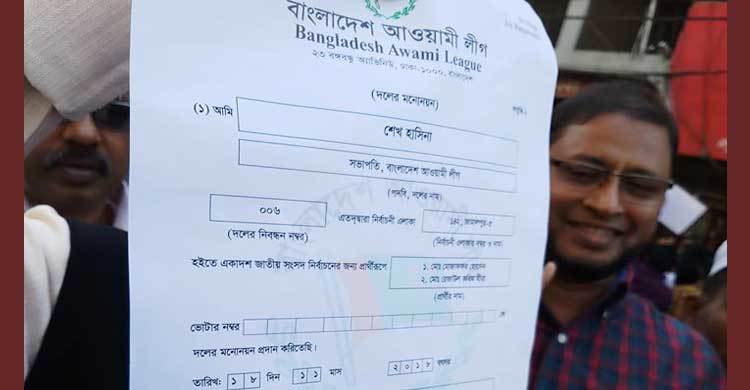 বাংলাদেশ আওয়ামী লীগ
Bangladesh Awami League
২৩ বঙ্গবন্ধু অ্যাভিনিউ, ঢাকা-১০০০, বাংলাদেশ
(দলের মনোনয়ন)
(১) আমি
শেখ হাসিনা
সভাপতি, বাংলাদেশ আওয়ামী লীগ
(পদবি, দলের নাম)
০০৬ এতদ্দ্বারা নির্বাচনী এলাকা ১৪২, জামালপুর-৫
(দলের নিবন্ধন নম্বর) (নির্বাচনী এলাকার নম্বর ও নাম)
হইতে একাদশ জাতীয় সংসদ নির্বাচনের জন্য প্রার্থীরূপে ১. মোঃ মোজাফফর হোসেন
২. মোঃ রেজাউল করিম হীরা
(প্রার্থীর নাম)
ভোটার নম্বর কে
দলের মনোনয়ন প্রদান করিতেছি।
তারিখ: ১৮ দিন ১১ মাস ২০১৮ বৎসর